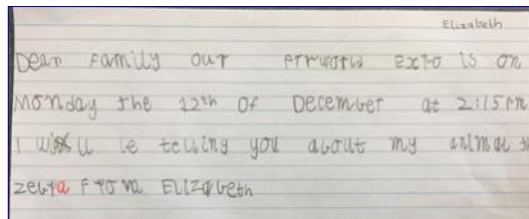 Elizabeth
Dear Family our Expo is on
Monday the 12th of December at 2:15pm
I will be telling you about my animal
zebra From Elizabeth